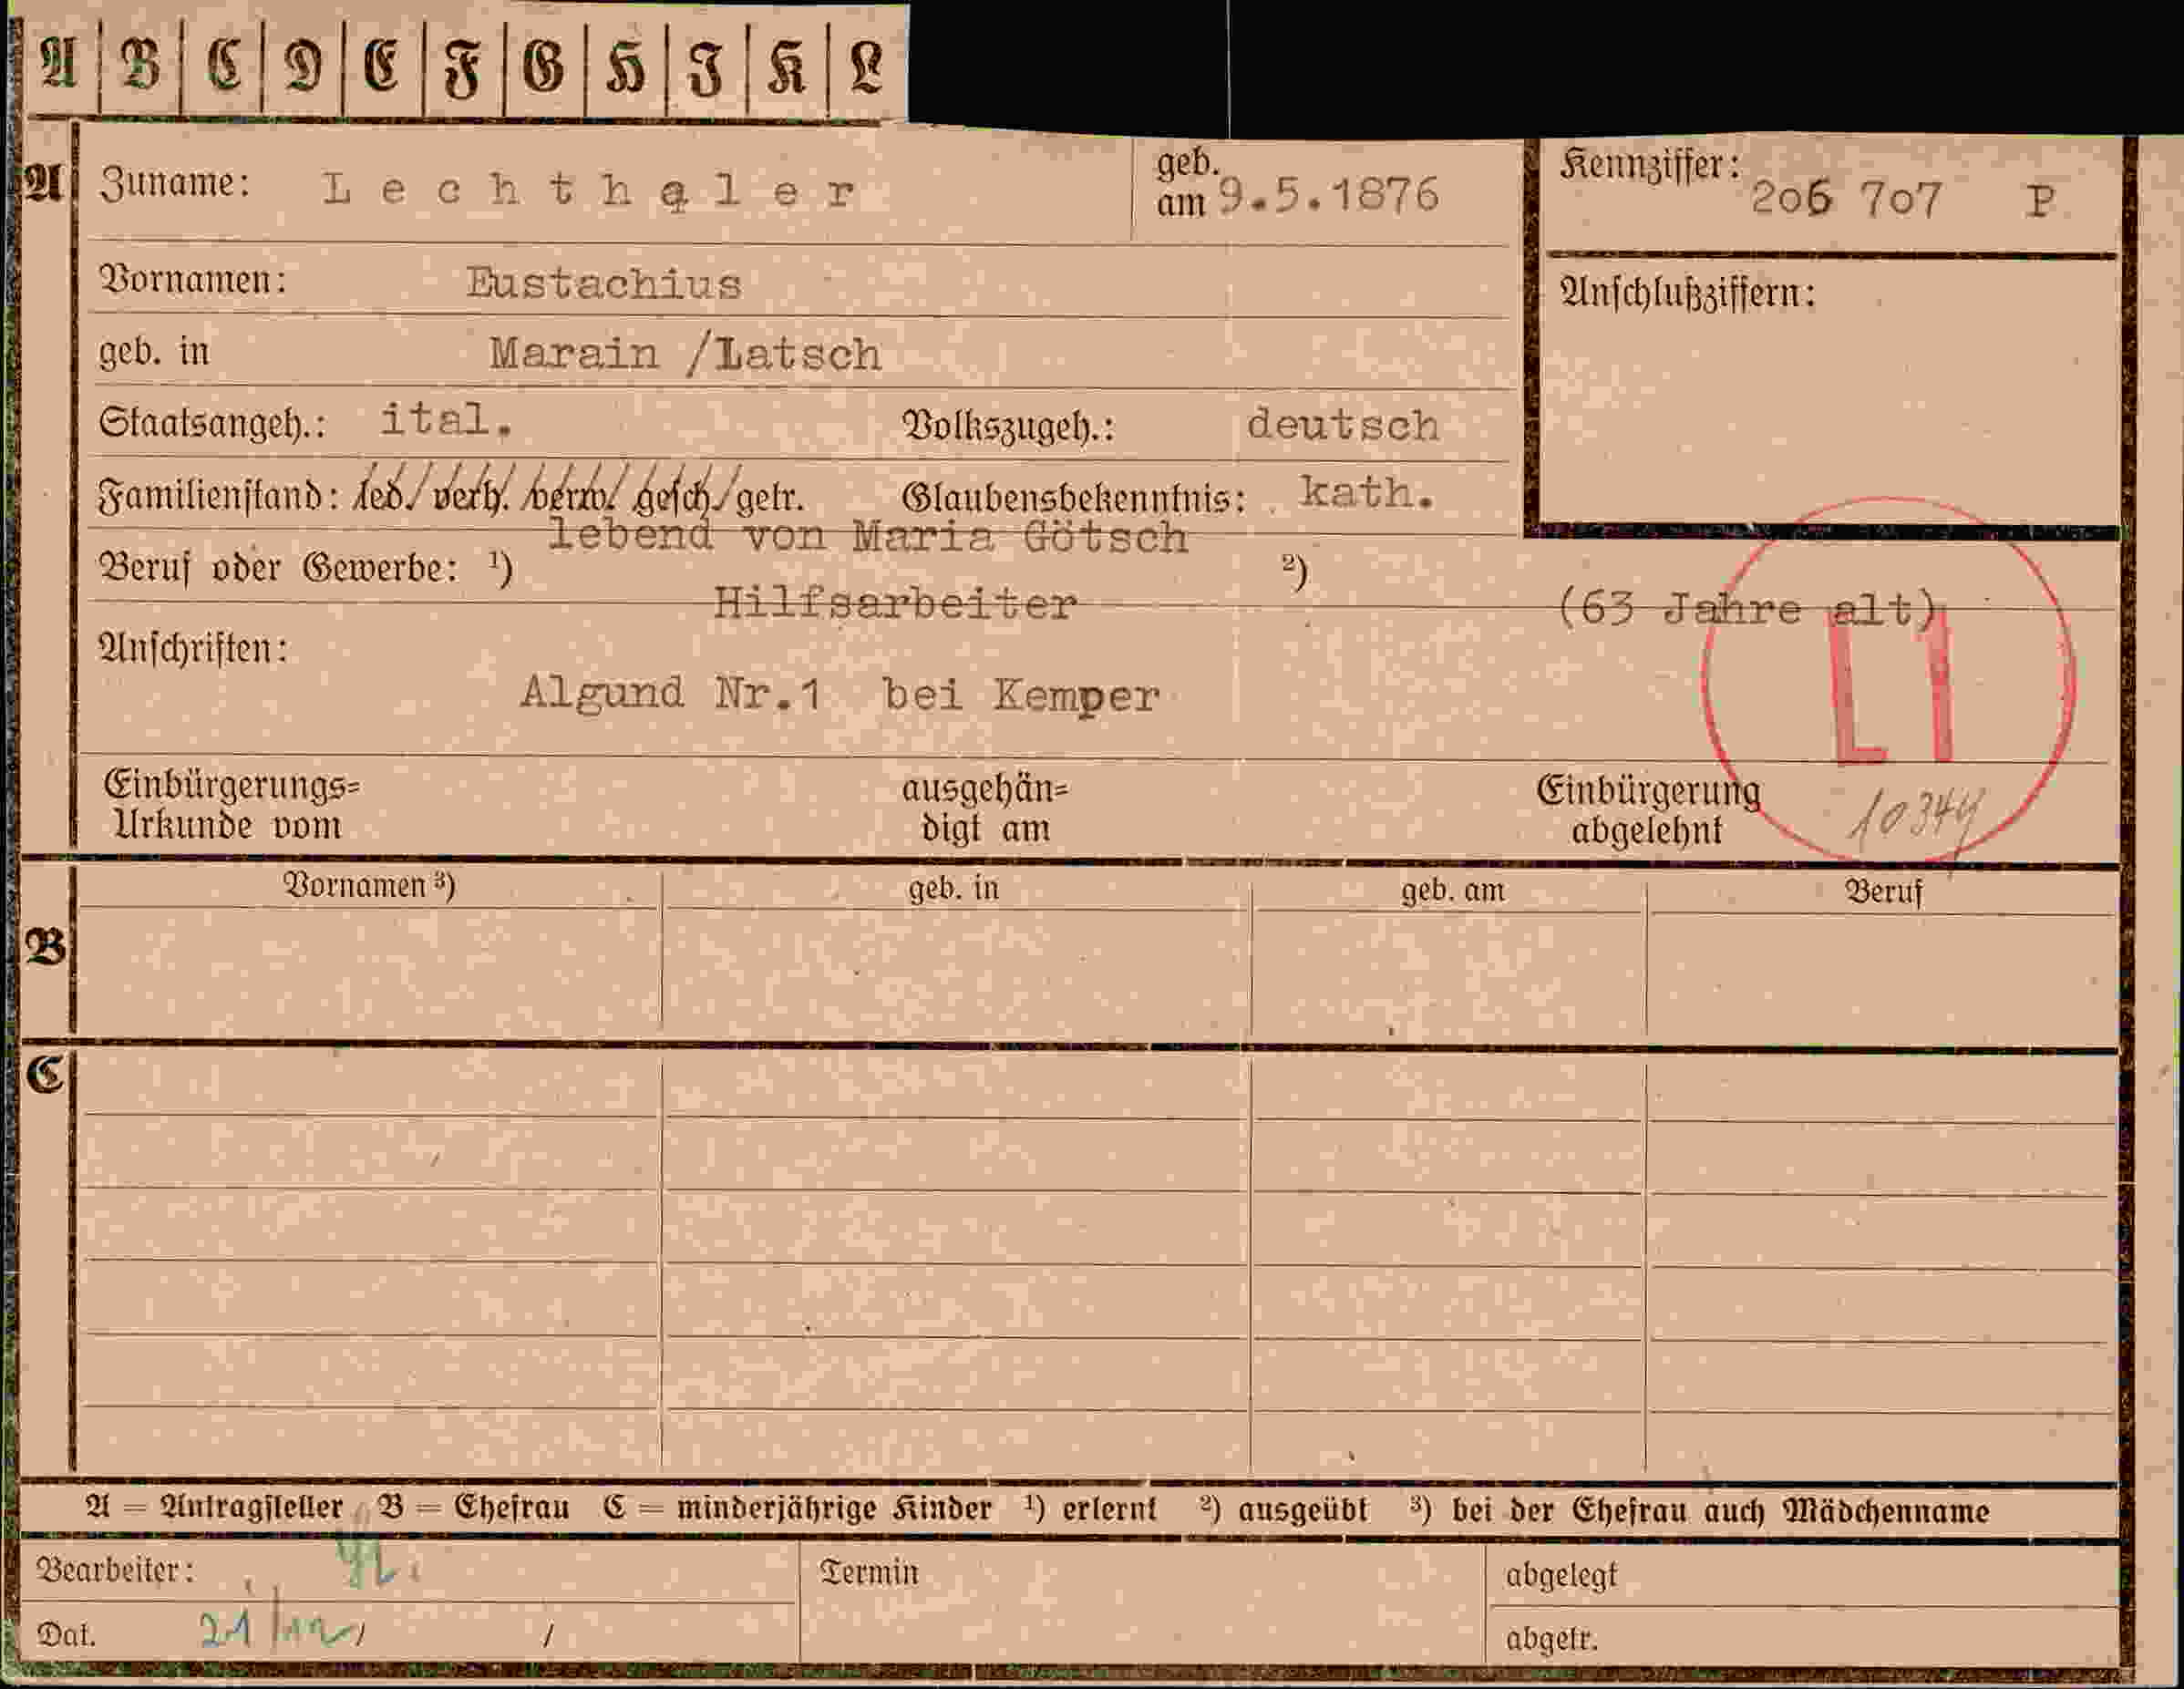 A B C D E F G H I K L
A Zuname: Lechthaler geb. am 9.5.1876 Kennziffer: 206 707 P
Vornamen: Eustachius Anschlußziffern:
geb. in Marain /Latsch
Staatsangeh.: ital. Volkszugeh.: deutsch
Familienstand: led./ verh. verw./ gesch./ getr. Glaubensbekenntnis: kath.
lebend von Maria Götsch
Beruf oder Gewerbe: ¹) ²)
Hilfsarbeiter (63 Jahre alt)
Anschriften:
L1
Algund Nr.1 bei Kemper
Einbürgerungs=
Urkunde vom
ausgehän=
digt am
Einbürgerung
abgelehnt
10344
B Vornamen ³) geb. in geb. am Beruf
C
A = Antragsteller B = Ehefrau C = minderjährige Kinder ¹) erlernt ²) ausgeübt ³) bei der Ehefrau auch Mädchenname
Bearbeiter: Termin abgelegt
Dat. 21/ / abgetr.